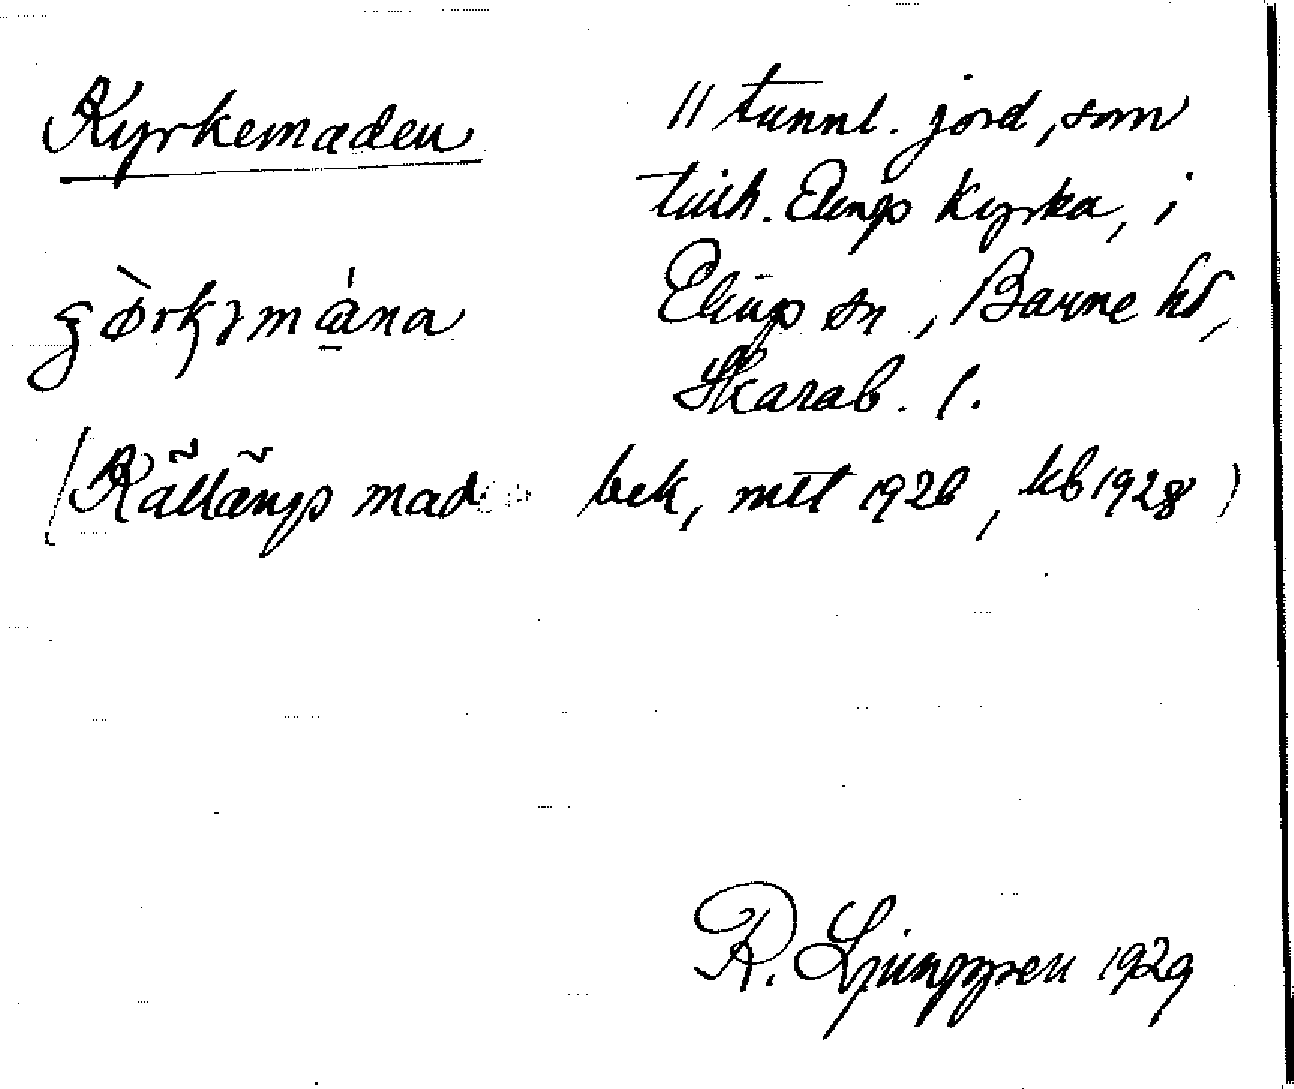 Kyrkemaden
11 tunnl. jord, som
tillh. Elings Kyrka, i
Elings sn, Barne hd,
Skarab. l.
(Källängs made bek, mtl 1926, kb 1928)
R. Ljunggren 1929